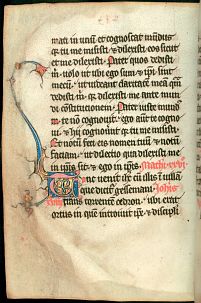 mati in unū et cognoscat mūdus
q̄ tu me misisti & dilexisti eos sicut
et me dilexisti. Pater quos dedisti
m̄ uolo ut ubi ego sū & ip̄i sint
mecū. ut uideant claritatē meā quā
dedisti m̄ q̄ dilexisti me ante mun
di constitutionem. Pater iuste mund9
te nō cognouit. ego aūt te cogno
ui. & hii cognouīt q̄ tu me misisti.
Et notū feci eis nomen tuū & notū
faciam. ut dilectio qua dilexisti me
in ip̄is sit. & ego in ip̄is. Mathi xxvi
Tunc uenit ihc cū illis ī uillā
que dicit̄ gethsemani. Johis
xviii trans torrentē cedron. ubi erat
ortus in quē introiuit ip̄e. & discipli